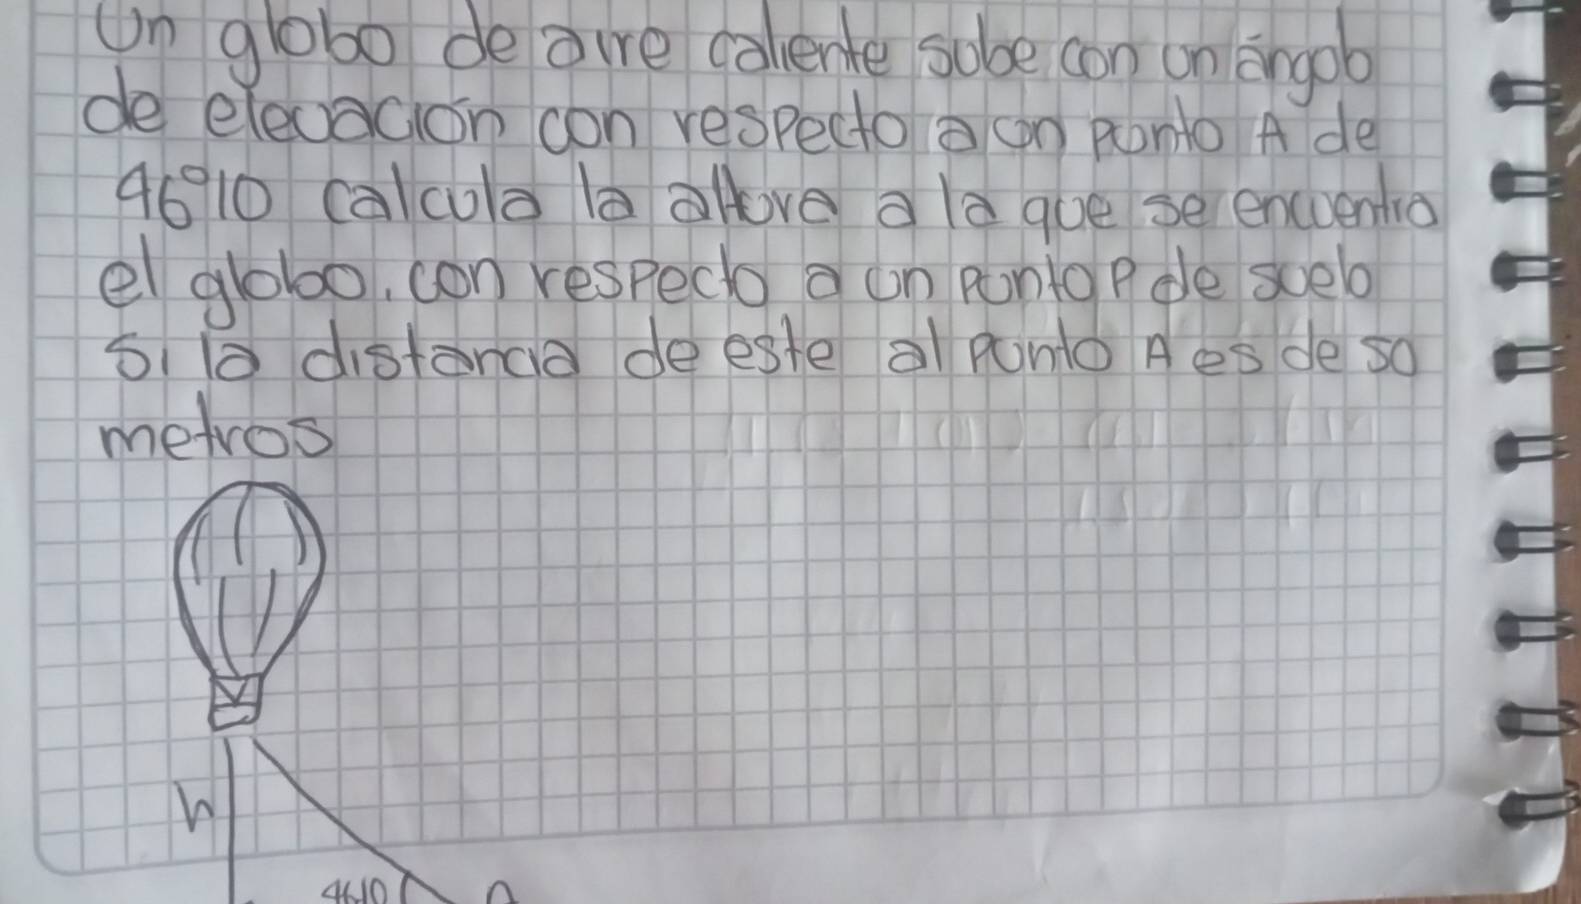 Un globo de aire caliente sube con un ángolo
de elevación con respecto a un punto A de
46°10 calcula la altura a la que se encuentra
el globo. con respecto a un punto P de suelo
si la distancia de este al punto A es de 50
metros
h
4610 A